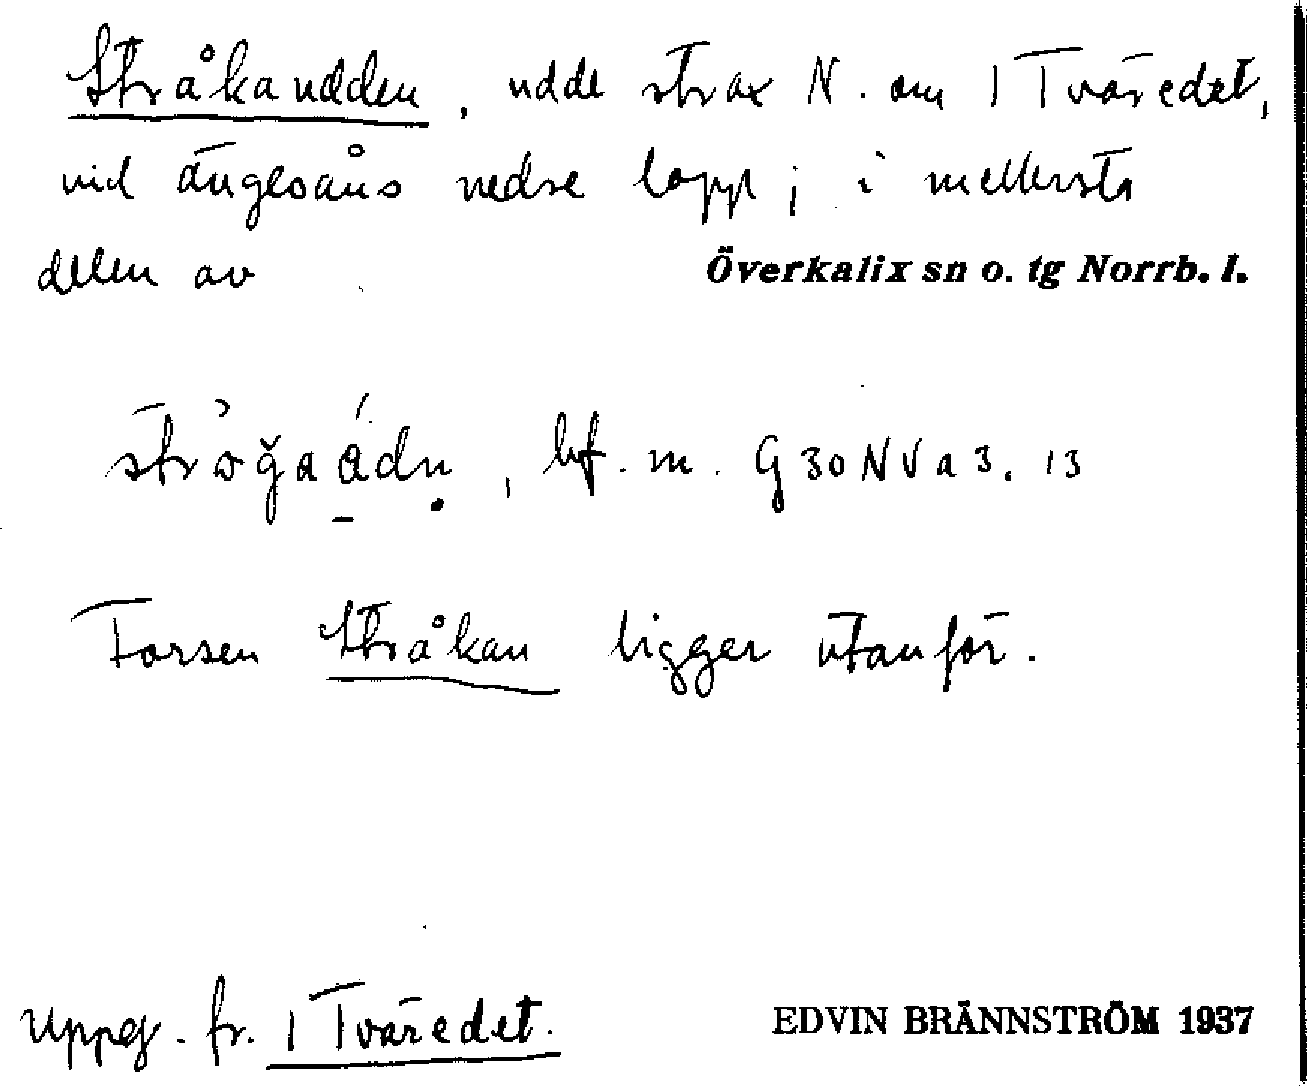 Stråkaudden, udde strax N. om 1 Tväredet,
vid ängesåns nedre lopp; i mellersta
delen av Överkalix sn o. tg Norrb. l.
bf. m. G 30 NV a 3. 13
Forsen Stråkan ligger utanför.
Uppg. fr. 1 Tväredet.
EDVIN BRÄNNSTRÖM 1937